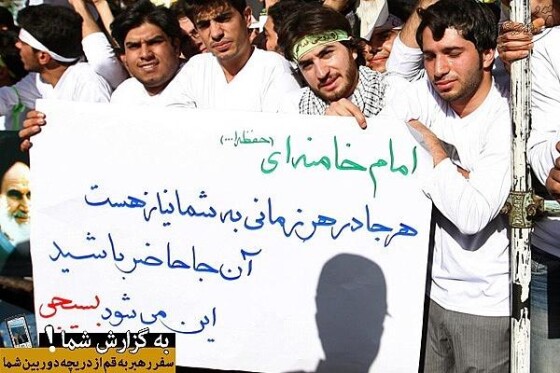 امام خامنه ای (حفظه ا...)
هر جا در هر زمانی به شما نیاز هست
آن جا حاضر باشید
این می شود بسیجی
به گزارش شما!
سفر رهبر به قم از دریچه دوربین شما